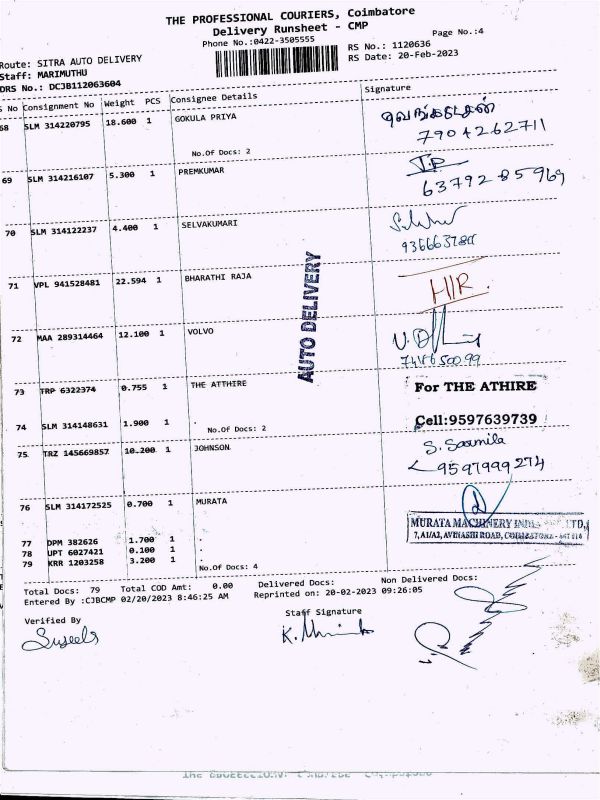 THE PROFESSIONAL COURIERS, Coimbatore
Delivery Runsheet - CMP
Phone No.:0422-3505555
Page No.:4
Route: SITRA AUTO DELIVERY
RS No.: 1120636
Staff: MARIMUTHU
RS Date: 20-Feb-2023
DRS No.: DCJB112063604
S No Consignment No Weight PCS Consignee Details Signature
68 SLM 314220795 18.600 1 GOKULA PRIYA
7904262711
No.Of Docs: 2
69 SLM 314216107 5.300 1 PREMKUMAR
6379285969
70 SLM 314122237 4.400 1 SELVAKUMARI
71 VPL 941528481 22.594 1 BHARATHI RAJA
H/R.
AUTO DELIVERY
72 MAA 289314464 12.100 1 VOLVO
73 TRP 6322374 0.755 1 THE ATTHIRE
For THE ATHIRE
Cell:9597639739
74 SLM 314148631 1.900 1 .
No.Of Docs: 2
75 TRZ 145669857 10.200 1 JOHNSON
S. Sasmila
9597999274
76 SLM 314172525 0.700 1 MURATA
MURATA MACHINERY INDIA LTD,
7, A1/A2, AVINASHI ROAD, COIMBATORE - 641 014
77 DPM 382626 1.700 1 .
78 UPT 6027421 0.100 1 .
79 KRR 1203258 3.200 1 .
No.Of Docs: 4
Total Docs: 79 Total COD Amt: 0.00 Delivered Docs: Non Delivered Docs:
Entered By :CJBCMP 02/20/2023 8:46:25 AM Reprinted on: 20-02-2023 09:26:05
Verified By
Staff Signature